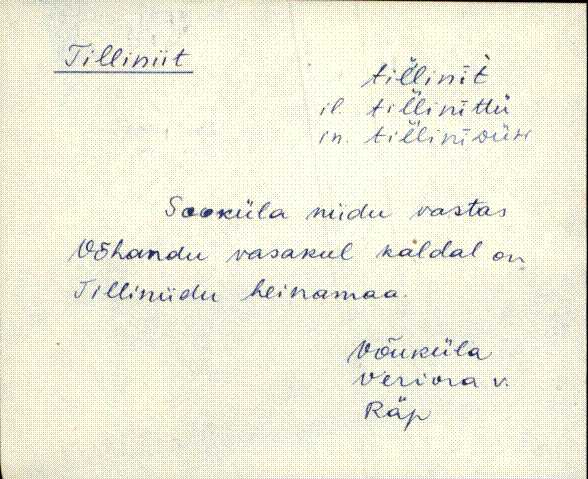 Tilliniit
tillinīt̀
il. tillinīttü
in. tillinīdüh
Sooküla niidu vastas
Võhandu vasakul kaldal on
Tilliniidu heinamaa.
Võuküla
Veriora v.
Räp